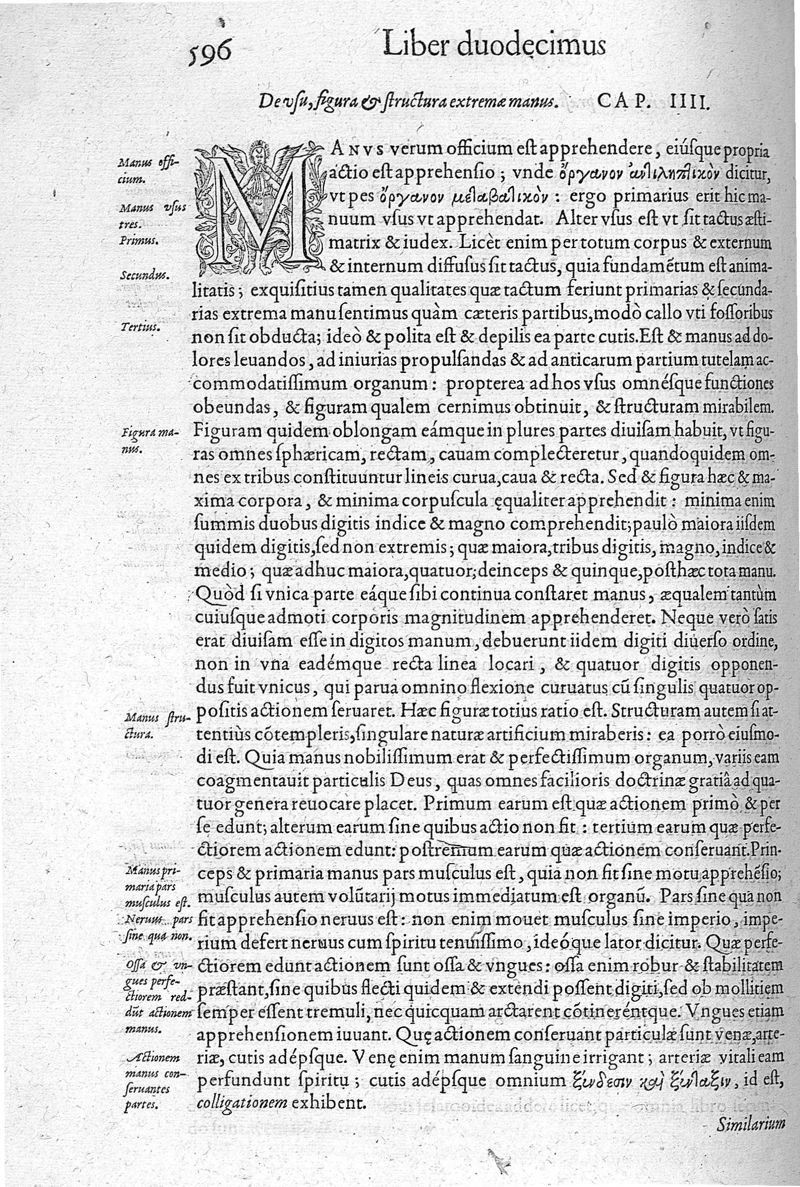 596
Liber duodecimus
De vsu, figura & structura extremæ manus. CAP. IIII.
Manus offi-
cium.
Manus vsus
tres.
Primus.
Secundus.
Tertius.
Figura ma-
nus.
Manus stru-
ctura.
Manus pri-
maria pars
musculus est.
Neruus pars
sine qua non.
Ossa & vn-
gues perfe-
ctiorem red-
dũt actionem
manus.
Actionem
manus con-
seruantes
partes.
MANVS verum officium est apprehendere, eiúsque propria
actio est apprehensio; vnde ὄργανον ἀντιληπτικὸν dicitur,
vt pes ὄργανον μεταβατικὸν: ergo primarius erit hic ma-
nuum vsus vt apprehendat. Alter vsus est vt sit tactus æsti-
matrix & iudex. Licèt enim per totum corpus & externum
& internum diffusus sit tactus, quia fundamẽtum est anima-
litatis; exquisitius tamen qualitates quæ tactum feriunt primarias & secunda-
rias extrema manu sentimus quàm cæteris partibus, modò callo vti fossoribus
non sit obducta; ideò & polita est & depilis ea parte cutis. Est & manus ad do-
lores leuandos, ad iniurias propulsandas & ad anticarum partium tutelam ac-
commodatissimum organum: propterea ad hos vsus omnésque functiones
obeundas, & figuram qualem cernimus obtinuit, & structuram mirabilem.
Figuram quidem oblongam eámque in plures partes diuisam habuit, vt figu-
ras omnes sphæricam, rectam, cauam complecteretur, quandoquidem om-
nes ex tribus constituuntur lineis curua, caua & recta. Sed & figura hæc & ma-
xima corpora, & minima corpuscula ęqualiter apprehendit: minima enim
summis duobus digitis indice & magno comprehendit; paulò maiora iisdem
quidem digitis, sed non extremis; quæ maiora, tribus digitis, magno, indice &
medio; quæ adhuc maiora, quatuor; deinceps & quinque, posthæc tota manu.
Quòd si vnica parte eáque sibi continua constaret manus, æqualem tantùm
cuiusque admoti corporis magnitudinem apprehenderet. Neque verò satis
erat diuisam esse in digitos manum, debuerunt iidem digiti diuerso ordine,
non in vna eadémque recta linea locari, & quatuor digitis opponen-
dus fuit vnicus, qui parua omnino flexione curuatus cũ singulis quatuor op-
positis actionem seruaret. Hæc figuræ totius ratio est. Structuram autem si at-
tentiùs cõtempleris, singulare naturæ artificium miraberis: ea porrò eiusmo-
di est. Quia manus nobilissimum erat & perfectissimum organum, variis eam
coagmentauit particulis Deus, quas omnes facilioris doctrinæ gratiâ ad qua-
tuor genera reuocare placet. Primum earum est quæ actionem primò & per
se edunt; alterum earum sine quibus actio non fit: tertium earum quæ perfe-
ctiorem actionem edunt: postremum earum quæ actionem conseruant. Prin-
ceps & primaria manus pars musculus est, quia non fit sine motu apprehẽsio;
musculus autem volũtarij motus immediatum est organũ. Pars sine qua non
fit apprehensio neruus est: non enim mouet musculus sine imperio, impe-
rium defert neruus cum spiritu tenuissimo, ideóque lator dicitur. Quæ perfe-
ctiorem edunt actionem sunt ossa & vngues: ossa enim robur & stabilitatem
præstant, sine quibus flecti quidem & extendi possent digiti, sed ob mollitiem
semper essent tremuli, nec quicquam arctarent cõtinerẽntque. Vngues etiam
apprehensionem iuuant. Quę actionem conseruant particulæ sunt venæ, arte-
riæ, cutis adépsque. Venę enim manum sanguine irrigant; arteriæ vitali eam
perfundunt spiritu; cutis adépsque omnium ξύνδεσιν καὶ ξύνταξιν, id est,
colligationem exhibent.
Similarium